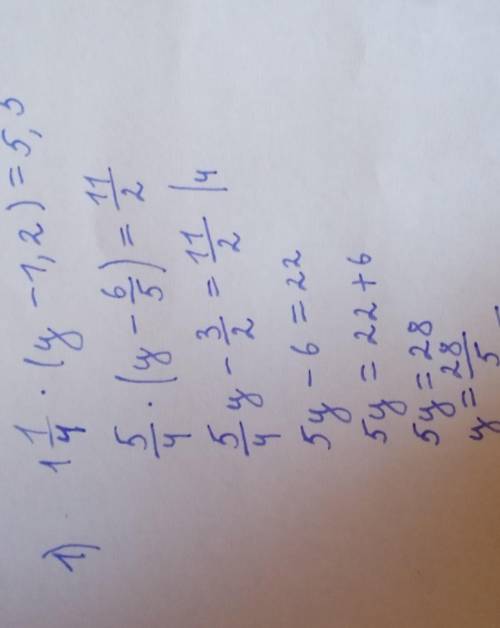 1) 1 1/4 · (y - 1,2) = 5,5
5/4 · (y - 6/5) = 11/2
5/4 y - 3/2 = 11/2 |4
5y - 6 = 22
5y = 22 + 6
5y = 28
y = 28/5